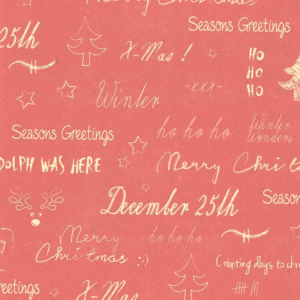 Merry Christmas
Seasons Greetings
25th
X-Mas !
HO
HO
HO
Winter
-xxx-
Seasons Greetings
ho ho ho
Winter
Wonders
DOLPH WAS HERE
Merry Christ
December 25th
Seaso
Merry
Christmas :)
ho ho ho
Counting days to ch
reetings
X-Mas